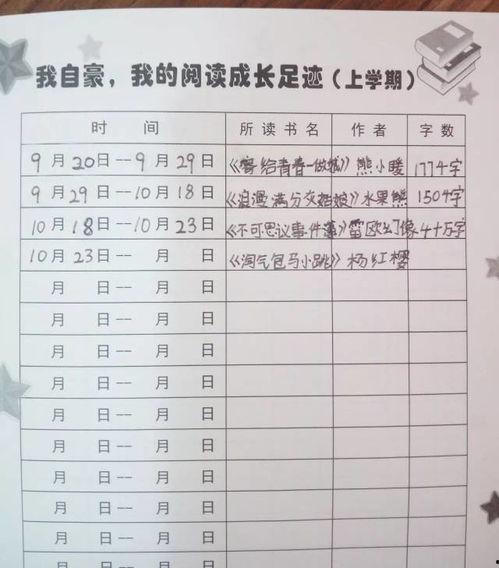 我自豪，我的阅读成长足迹（上学期）
时 间 所读书名 作者 字数
9月20日--9月29日 《寄给青春一做城》 熊小暖 177千字
9月29日--10月18日 《浪漫满分交姐姐》 水果熊 150千字
10月18日--10月23日 《不可思议事件簿》 雷欧幻像 4十万字
10月23日-- 月 日 《淘气包马小跳》 杨红樱
月 日-- 月 日
月 日-- 月 日
月 日-- 月 日
月 日-- 月 日
月 日-- 月 日
月 日-- 月 日
月 日-- 月 日
月 日-- 月 日
月 日-- 月 日